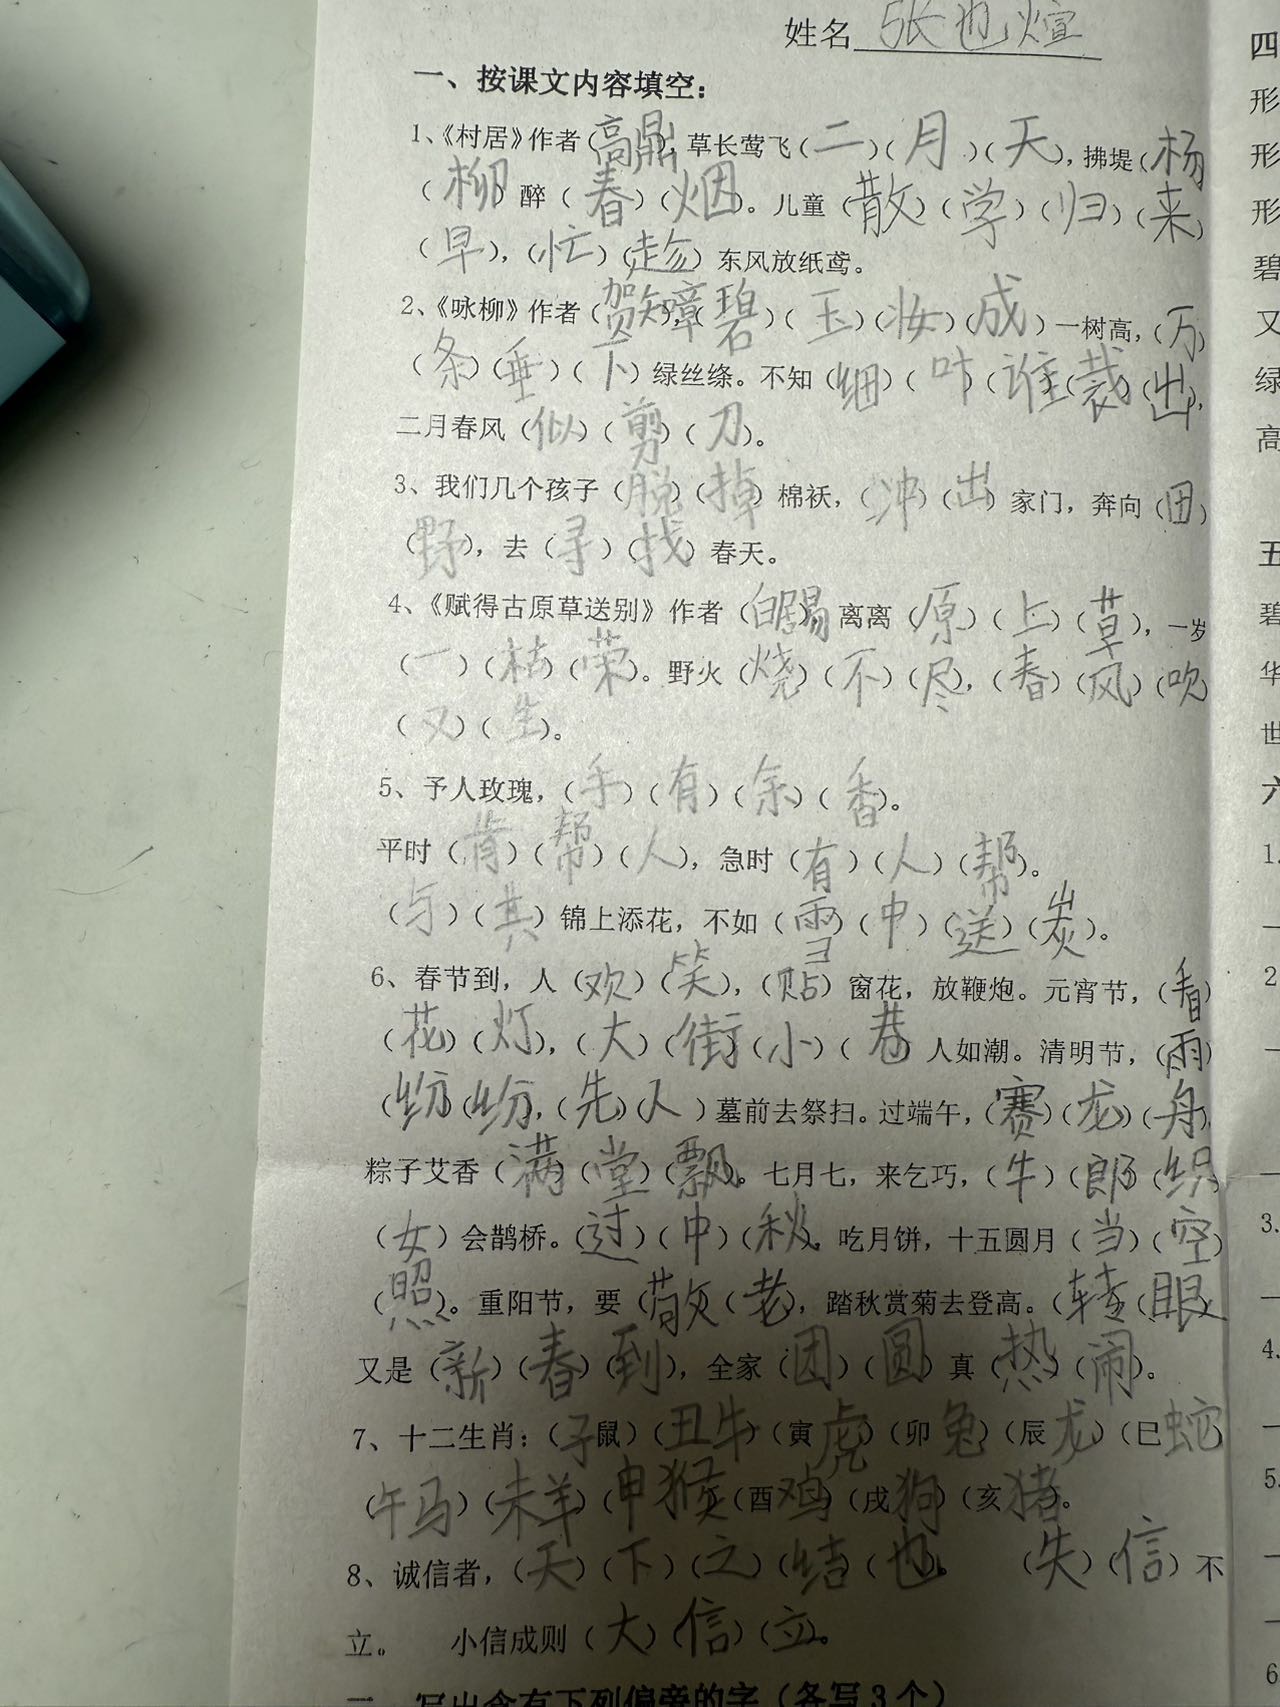 姓名 张也煊
一、按课文内容填空：
1、《村居》作者（高鼎），草长莺飞（二）（月）（天），拂堤（杨
（柳）醉（春）（烟）。儿童（散）（学）（归）（来）
（早），（忙）（趁）东风放纸鸢。
2、《咏柳》作者（贺知璋），（碧）（玉）（妆）（成）一树高，（万）
（条）（垂）（下）绿丝绦。不知（细）（叶）（谁）（裁）（出），
二月春风（似）（剪）（刀）。
3、我们几个孩子（脱）（掉）棉袄，（冲）（出）家门，奔向（田）
（野），去（寻）（找）春天。
4、《赋得古原草送别》作者（白居易）离离（原）（上）（草），一岁
（一）（枯）（荣）。野火（烧）（不）（尽），（春）（风）（吹）
（又）（生）。
5、予人玫瑰，（手）（有）（余）（香）。
平时（肯）（帮）（人），急时（有）（人）（帮）。
（与）（其）锦上添花，不如（雪）（中）（送）（炭）。
6、春节到，人（欢）（笑），（贴）窗花，放鞭炮。元宵节，（看）
（花）（灯），（大）（街）（小）（巷）人如潮。清明节，（雨）
（纷）（纷），（先）（人）墓前去祭扫。过端午，（赛）（龙）（舟），
粽子艾香（满）（堂）（飘）。七月七，来乞巧，（牛）（郎）（织）
（女）会鹊桥。（过）（中）（秋），吃月饼，十五圆月（当）（空）
（照）。重阳节，要（敬）（老），踏秋赏菊去登高。（转）（眼）
又是（新）（春）（到），全家（团）（圆）真（热）（闹）。
7、十二生肖：（子鼠）（丑牛）（寅虎）（卯兔）（辰龙）（巳蛇）
（午马）（未羊）（申猴）（酉鸡）（戌狗）（亥猪）。
8、诚信者，（天）（下）（之）（结）（也）。（失）（信）不
立。 小信成则（大）（信）（立）。
二、写出含有下列偏旁的字（各写3个）
四
形
形
形
碧
又
绿
高
五
碧
华
世
六
1.
2
3.
4.
5.
6